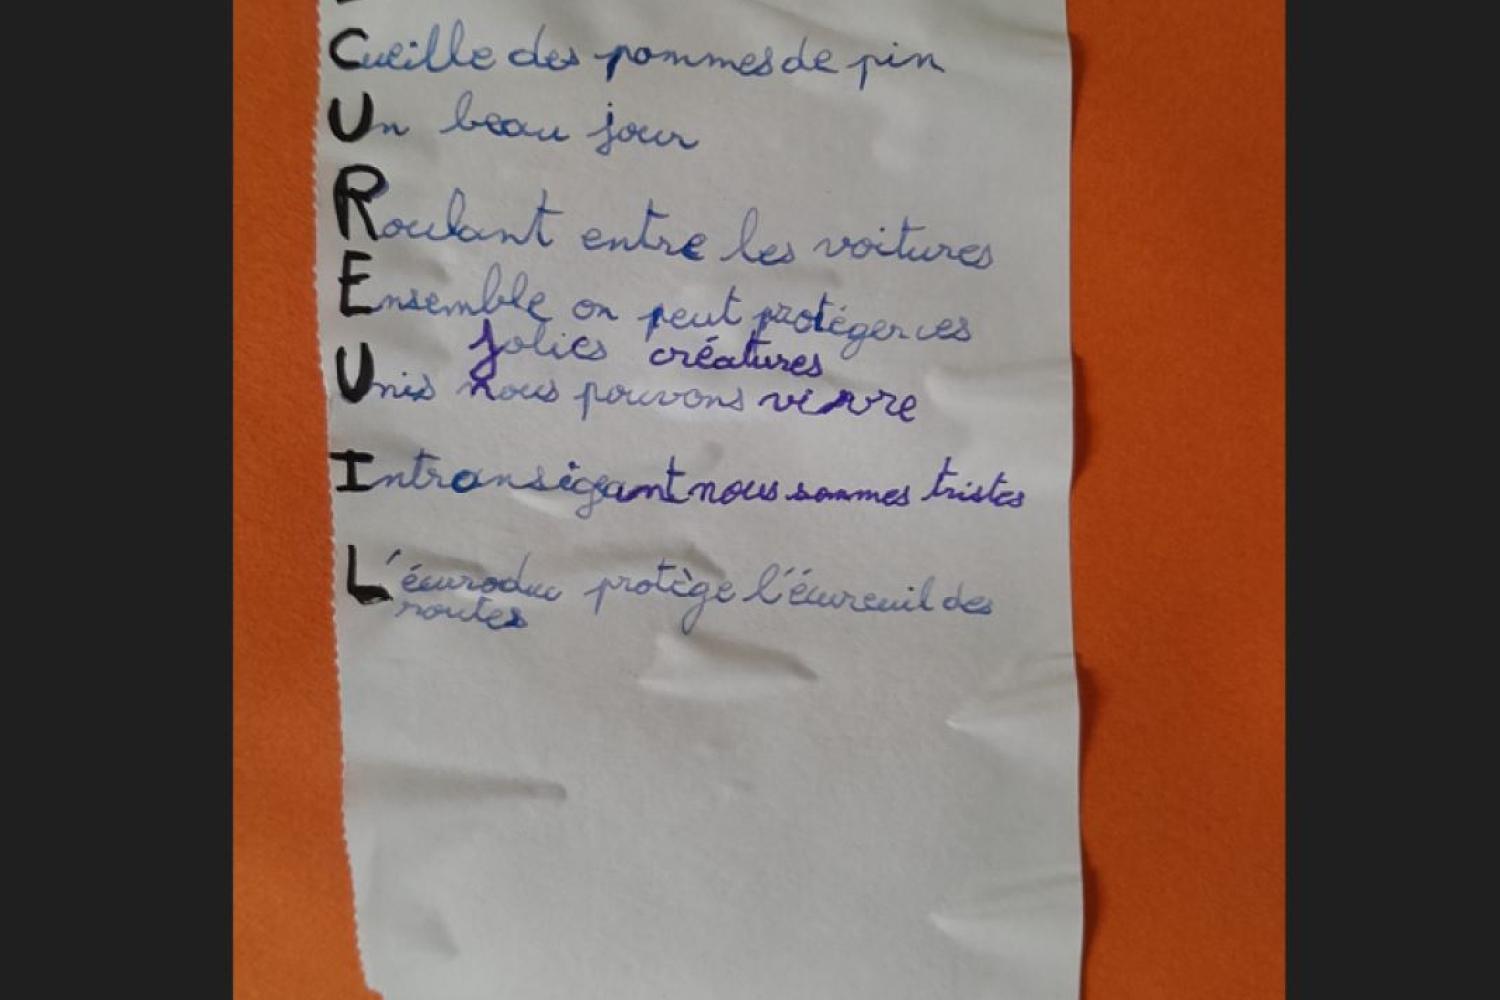 Cueille des pommes de pin
Un beau jour
Roulant entre les voitures
Ensemble on peut protéger ces
jolies créatures
Unis nous pouvons vivre
Intransigeant nous sommes tristes
L'écuroduc protège l'écureuil des
routes